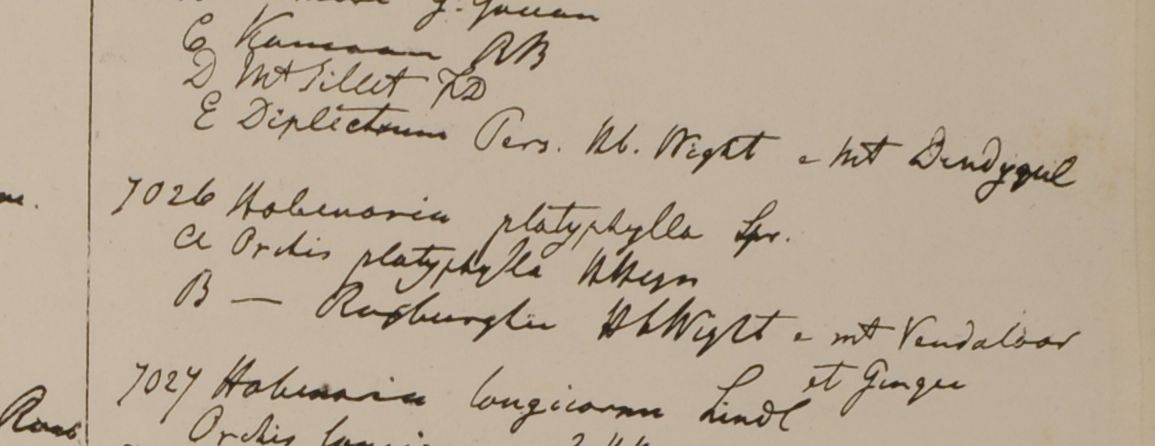 C Kamaon RB
D Mt Sillet FD
E Diplectrum Pers. Hb. Wight e Mt Dindygul
7026 Habenaria platyphylla Spr.
a Orchis platyphylla HHeyn
B — Roxburghii HbWight e mt Vendaloor
et Gingee
7027 Habenaria longicornu Lindl
Orchis
Roxb